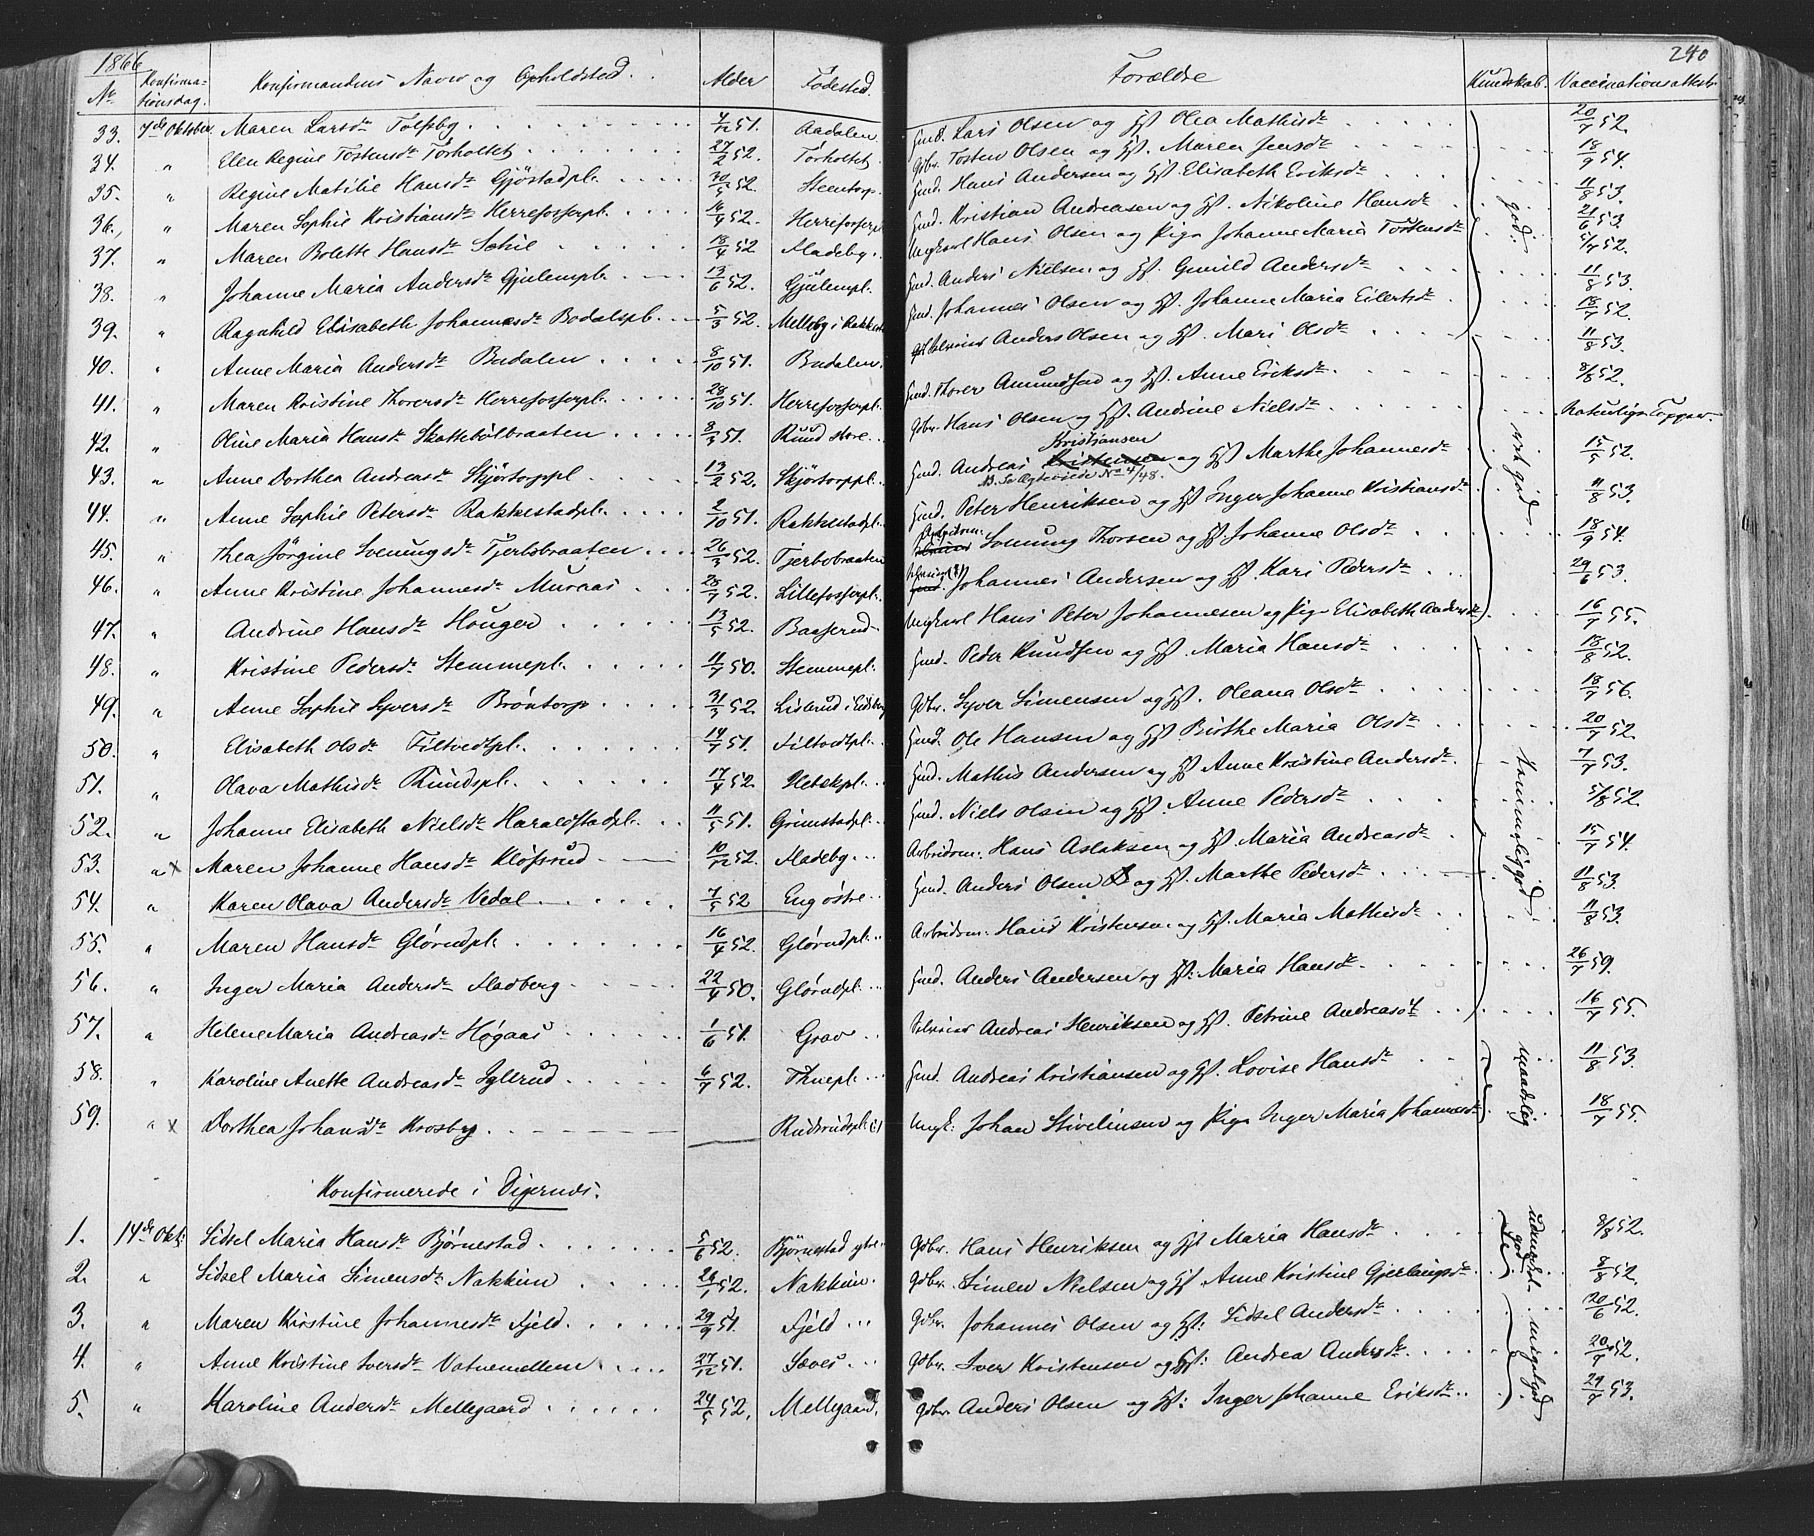 1866
240
No Konfirmationsdag. Konfirmandens Navn og Opholdsted. Alder Fødested. Forældre Kundskab. Vaccinationsattest
33. 7de Oktober Maren Larsdr Tolfsby 4/12 51. Aadalen Gmd. Lars Olsen og Hst. Olea Mathisdr 20/7 52.
34. " Elen Regine Tostensdr Torholtet 27/2 52. Torholtet. Gdbr. Tosten Olsen og Hst. Maren Jensdr 18/9 54.
35. " Regine Matilie Hansdr Gjøstadpl. 30/5 52. Steentorp Gmd. Hans Andersen og Hst. Elisabeth Eriksdr 11/8 53.
36. " Maren Sophie Kristiansdr Herrefosserpl. 14/4 52. Herrefosserpl Gmd. Kristian Andreasen og Hst. Nikoline Hansdr 21/6 53. god.
37. " Maren Bolette Hansdr 18/4 52 Fladeby. Ungkarl Hans Olsen og Pige Johanne Maria Tostensdr 5/7 52.
38. " Johanne Maria Andersdr Gjulempl. 13/6 52. Gjulempl. Gmd. Anders Nielsen og Hst. Gunild Andersdr 11/8 53.
39. " Ragnhild Elisabeth Johannesdr Bodalspl. 5/3 52. Melleby i Rakkestad Gmd. Johannes Olsen og Hst. Johanne Maria Eilertsdr 18/7 52.
40. " Anne Maria Andersdr Budalen 8/10 51. Budalen. Anders Olsen og Hst. Mari Olsdr 11/8 53.
41. " Maren Kristine Thorersdr Herrefosserpl. 28/10 51. Herrefosserpl. Gmd. Thorer Amundsen og Hst. Anne Eriksdr 8/8 52.
42. " Oline Maria Hansdr Skattebølbraaten 8/3 51. Ruud store Gdbr. Hans Olsen og Hst. Andrine Nielsdr Naturlige Kopper. meget god
43. " Anne Dorthea Andreasdr Skjørtorppl 13/2 52. Skjørtorppl. Gmd. Andreas Kristiansen og Hst Marthe Johannesdr 15/5 52.
44. " Anne Sophie Petersdr Rakkestadpl. 2/10 51. Rakkestadpl. Gmd. Peter Henriksen og Hst Inger Johanne Kristiansdr 11/8 53.
45. " Thea Jørgine Svenungsdr Tjerbobraaten 26/3 52. Tjerbobraaten Svenung Thorsen og Hst Johanne Olsdr 18/9 54.
46. " Anne Kristine Johannesdr Muraas 28/7 52. Lillefosserpl. Johannes Andersen og Hst. Kari Pedersdr 29/6 53.
47. " Andrine Hansdr Houger 13/5 52. Baaserud Ungkarl Hans Peter Johannesen og Pige Elisabeth Andersdr 16/7 55.
48. " Kristine Pedersdr Stemmepl. 11/7 50. Stemmepl. Gmd. Peder Knudsen og Hst. Maria Hansdr 18/8 52.
49. " Anne Sophie Syversdr Brøntorp 31/3 52. Lislerud i Eidsberg Gdbr. Syver Simensen og Hst. Oleana Olsdr 18/7 56.
50. " Elisabeth Olsdr Filtvedtpl. 14/7 51. Filtvedtpl. Gmd. Ole Hansen og Hst Birthe Maria Olsdr 20/7 52.
51. " Olava Mathisdr Ruudspl. 17/4 52. Gmd. Mathis Andersen og Hst Anne Kristine Andersdr 7/7 53. temmelig god.
52. " Johanne Elisabeth Nielsdr Haraldstadpl. 11/5 51. Grimstadpl. Gmd. Niels Olsen og Hst. Anne Pedersdr 5/8 52.
53. " x Maren Johanne Hansdr Kløfsrud 10/12 52. Fladeby. Arbeidsm. Hans Aslaksen og Hst Maria Andreasdr 15/7 54.
54. " Karen Olava Andersdr Vedal 7/5 52 Eng østre Gmd. Anders Olsen og Hst. Marthe Pedersdr 11/8 53.
55. " Maren Hansdr Glørudpl. 16/4 52. Glørudpl. Arbeidsm. Hans Kristensen og Hst. Maria Mathisdr 11/8 53.
56. " Inger Maria Andersdr Fladberg 22/4 50. Glørudpl. Gmd. Anders Andersen og Hst. Maria Hansdr 26/7 59.
57. " Helene Maria Andreasdr Høgaas 1/6 51. Grav Andreas Henriksen og Hst. Petrine Andreasdr 16/7 55.
58. " Karoline Anette Andreasdr Iglerud 6/7 52. Thuepl. Gmd. Andreas Kristiansen og Hst. Lovise Hansdr 11/8 53. maadelig
59. " x Dorthea Johansdr Krosby Rudsrudspl. Ungk. Johan Stivelinsen og Pige Inger Maria Johannesdr 18/7 55.
Konfirmerede i Digernes.
1. 14de Okt. Sidsel Maria Hansdr Bjørnestad 5/6 52. Bjørnestad ytre Gdbr. Hans Henriksen og Hst Maria Hansdr 8/8 52. udmærket god
2. " Sidsel Maria Simensdr Nakkim 26/1 52. Nakkim. Gdbr. Simen Nielsen og Hst. Anne Kristine Gjerlaugsdr 8/8 52.
3. " Maren Kristine Johannesdr Fjeld 29/9 51. Fjeld Gdbr. Johannes Olsen og Hst. Sidsel Andersdr 20/6 52. meget god
4. " Anne Kristine Iversdr Vatnemellem 27/12 51. Sæves Gdbr. Iver Kristensen og Hst. Andrea Andersdr 20/7 52.
5. " Karoline Andersdr Mellegaard 24/5 52. Mellegaard. Gdbr. Anders Olsen og Hst. Inger Johanne Eriksdr 29/7 53.